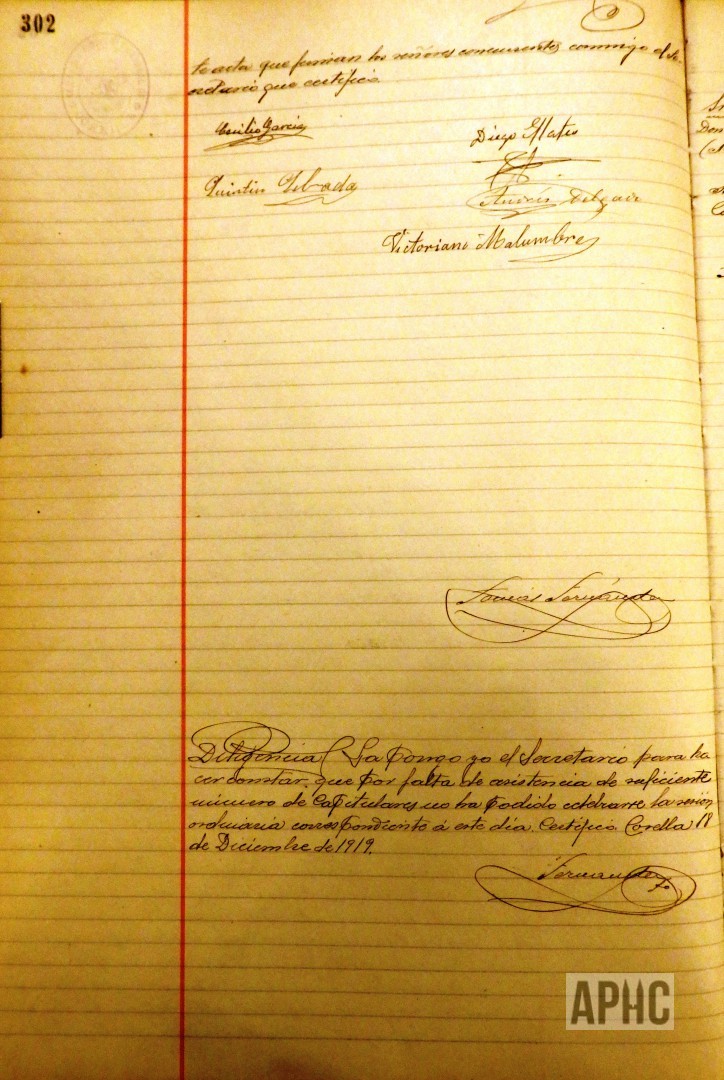 302
te acta que firman los señores concurrentes conmigo el Se-
cretario que certifico
Cecilio Garcia
Diego Mateo
Quintin
Andrés Delgado
Victoriano Malumbres
Tomás Fernández
Diligencia La pongo yo el Secretario para ha
cer constar, que por falta de asistencia de suficiente
número de capitulares no ha podido celebrarse la sesión
ordinaria correspondiente á este día. Certifico Corella 18
de Diciembre de 1919.
Fernández
APHC